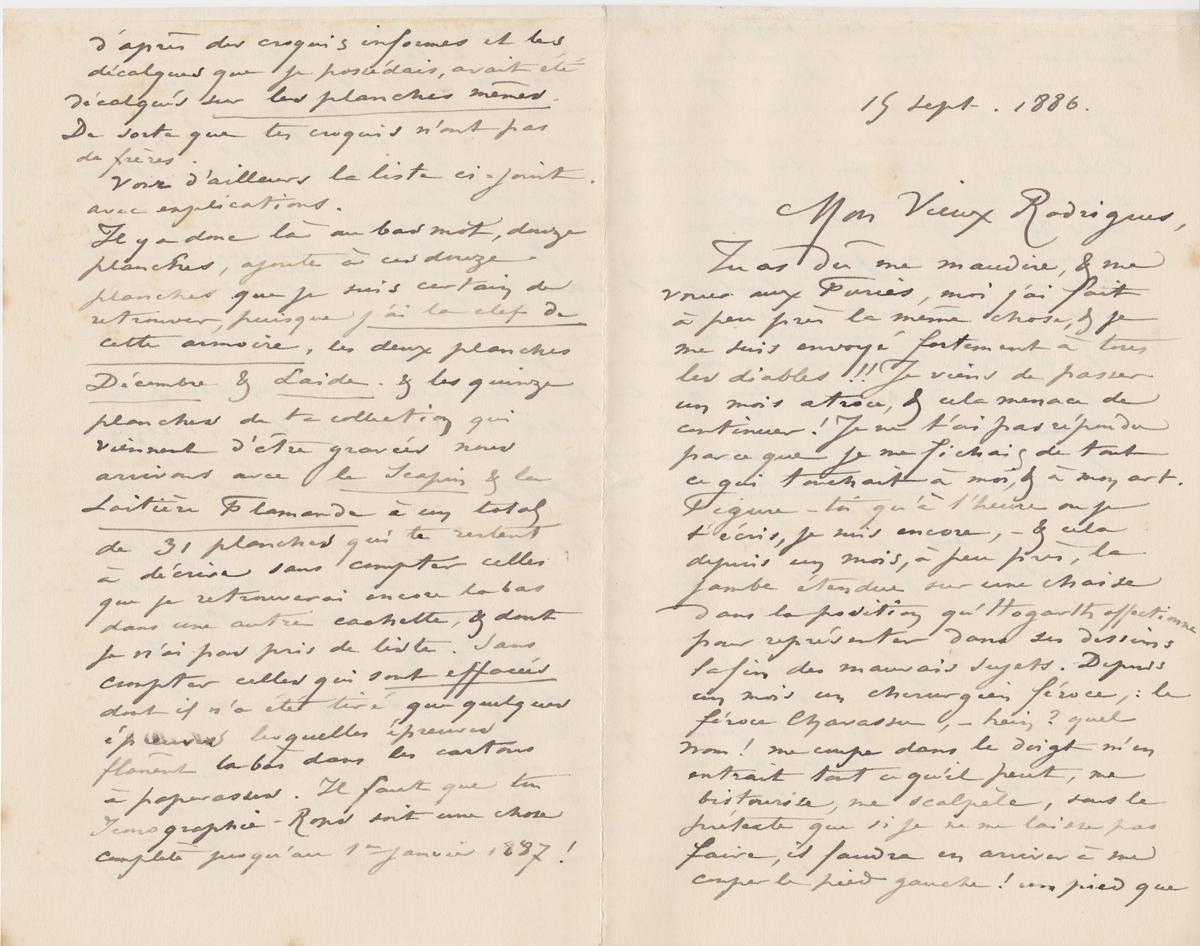 d'après des croquis informes et les
décalques que je possédais, avait été
décalqués sur les planches mêmes.
De sorte que tes croquis n'ont pas
de frères.
Voir d'ailleurs la liste ci-joint.
avec explications.
Il y a donc là au bas mot, douze
planches, ajoute à ces douze
planches que je suis certain de
retrouver, puisque j'ai la clef de
cette armoire, les deux planches
Décembre & Laide. & les quinze
planches de ta collection qui
viennent d'être gravées nous
arrivons avec le Scapin & la
Laitière Flamande à un total
de 31 planches qui te restent
à décrire sans compter celles
que je retrouverai encore la bas
dans une autre cachette, & dont
je n'ai pas pris de liste. Sans
compter celles qui sont effacées
dont il n'a été tiré que quelques
épreuves lesquelles épreuves
flânent la bas dans les cartons
à paperasses. Il faut que ton
Iconographie-Rops soit une chose
complète jusqu'au 1er janvier 1887 !
15 sept. 1886.
Mon Vieux Rodrigues,
Tu as dû me maudire, & me
vouer aux Furies, moi j'ai fait
à peu près la même chose, & je
me suis envoyé fortement à tous
les diables !!! Je viens de passer
un mois atroce, & cela menace de
continuer ! Je ne t'ai pas répondu
parce que je me fichais de tout
ce qui touchait à moi, & à mon art.
Figure-toi qu'à l'heure ou je
t'écris, je suis encore, - & cela
depuis un mois, à peu près, la
jambe étendue sur une chaise
dans la position qu'Hogarth affectionne
pour représenter dans ses dessins
la fin des mauvais sujets. Depuis
un mois un chirurgien féroce, : le
féroce Chavasse, - hein ? quel
nom ! me coupe dans le doigt m'en
extrait tout ce qu'il peut, me
bistourise, me scalpèle, sous le
prétexte que si je ne me laisse pas
faire, il faudra en arriver à me
couper le pied gauche ! un pied que